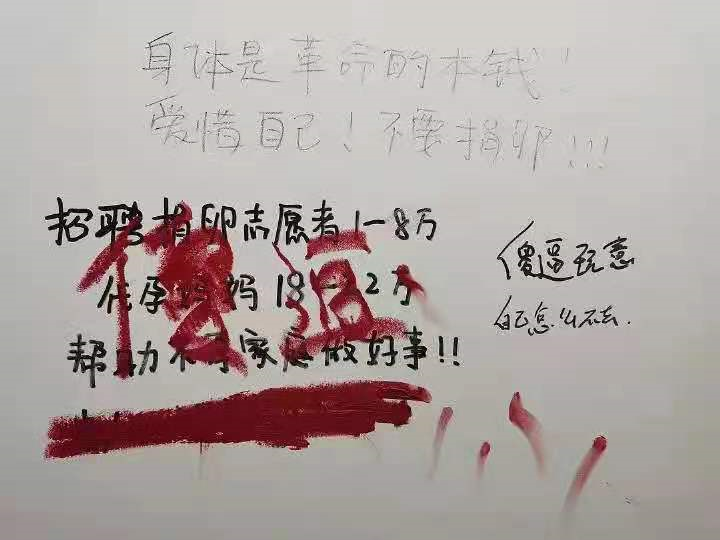 身体是革命的本钱！
爱惜自己！不要捐卵！！！
招聘捐卵志愿者1-8万
代孕妈妈18-22万
帮助不孕家庭做好事!!
傻逼
傻逼玩意
自己怎么不去.